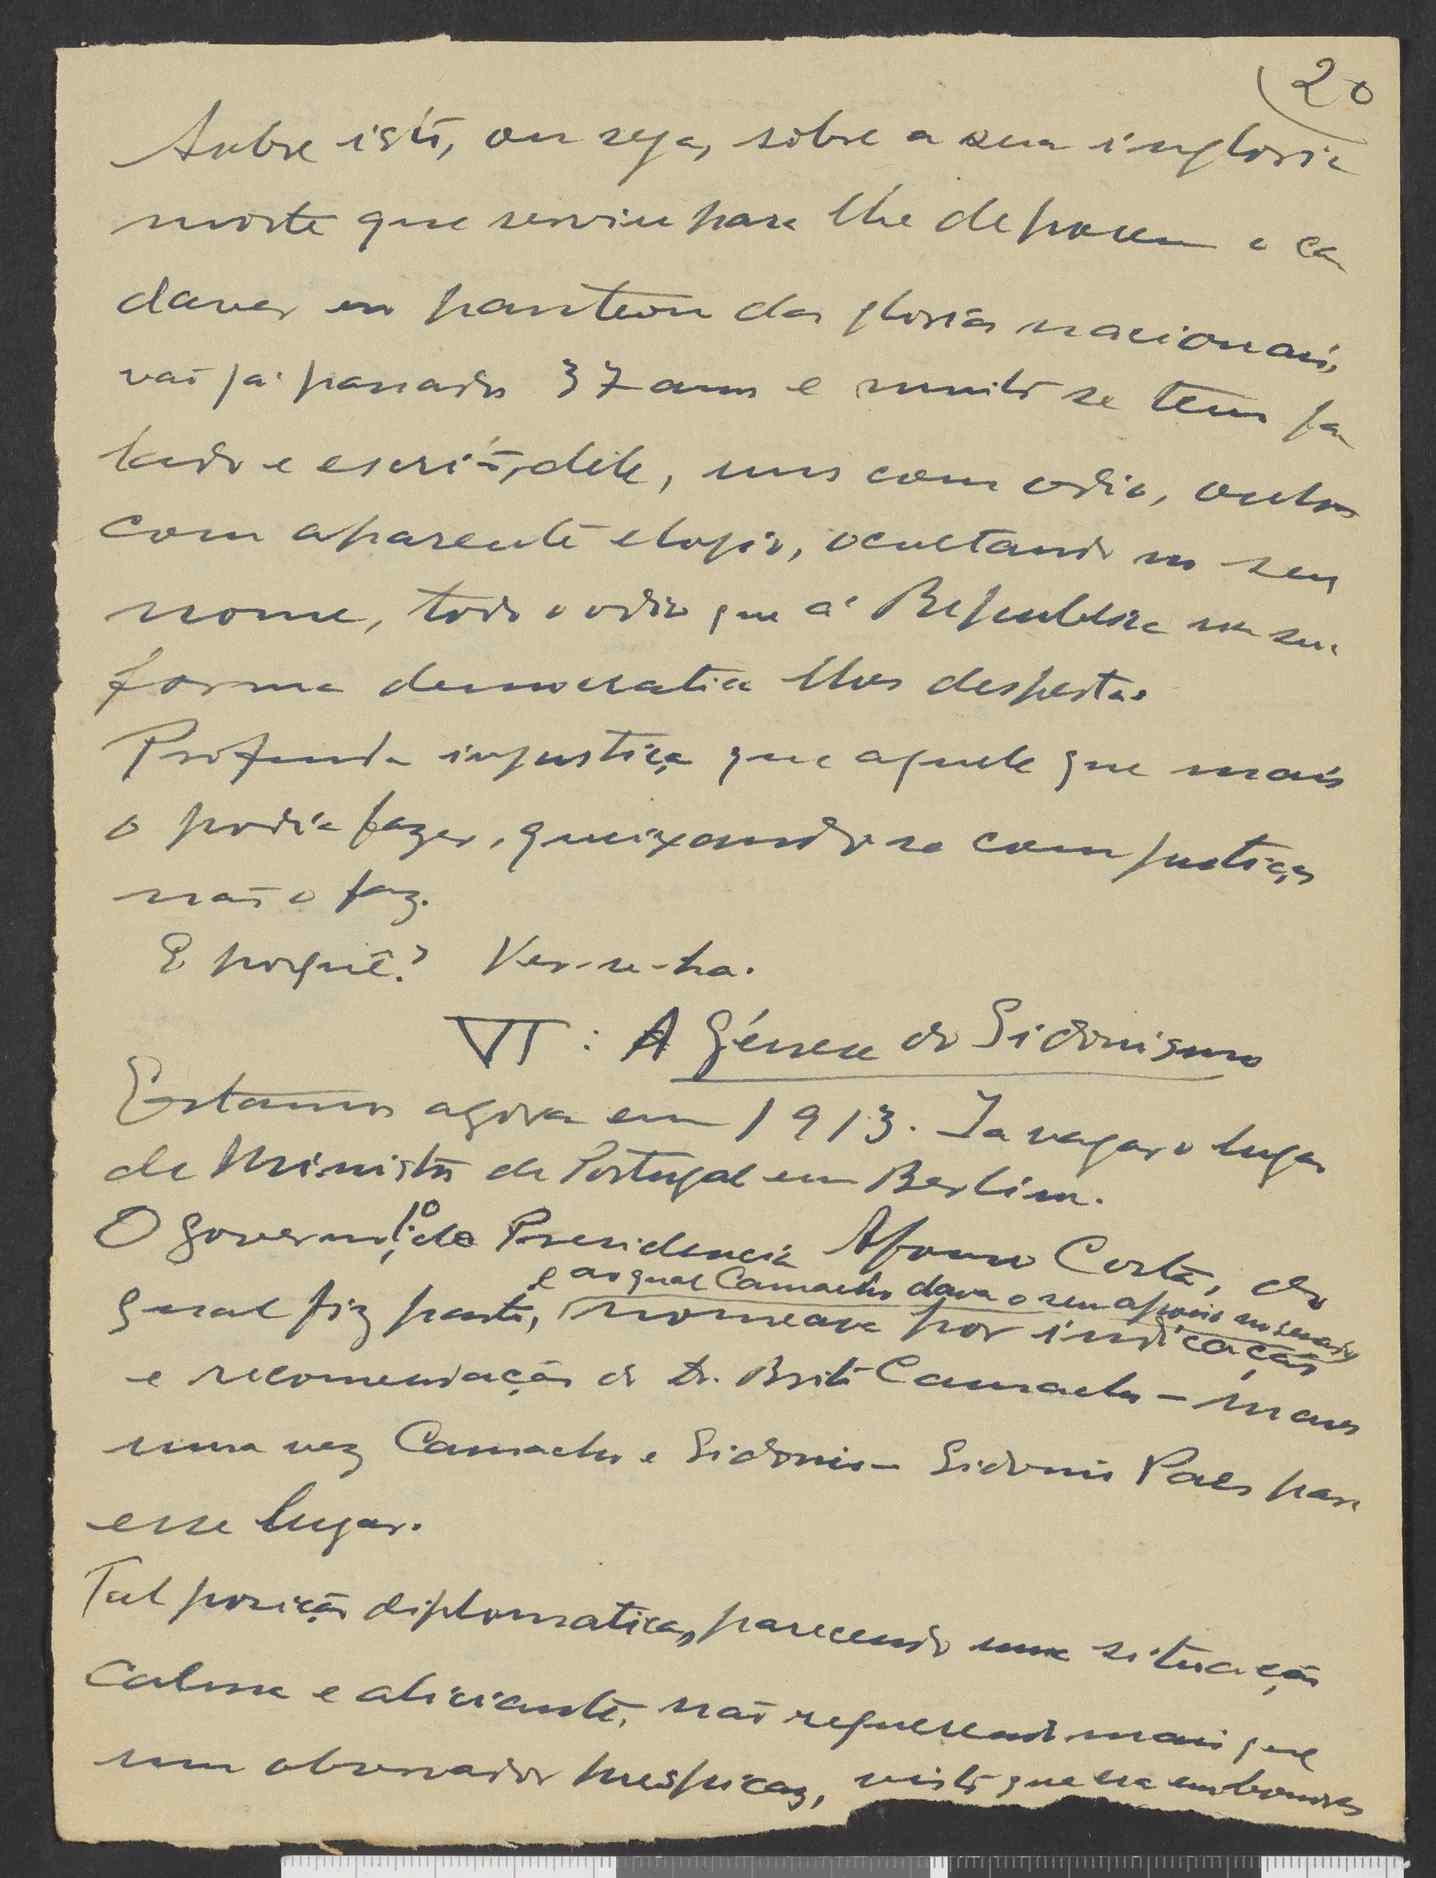 20
Sobre isto, ou seja, sôbre a sua ingloria
morte que serviu para lhe deporem o ca
daver no panteon das glorias nacionais,
vão já passados 37 anos e muito se tem fa
lado e escrito, dele, uns com odio, outros
com aparente elogio, ocultando no seu
nome, todo o odio que á Republica na sua
forma democratica lhes desperta.
Profunda injustiça que aquele que mais
o podia fazer, queixando-se com justiça,
não o faz.
E porquê? Ver-se-ha.
VI: A Génese do Sidonismo
Estamos agora em 1913. Ia vagar o lugar
de Ministro de Portugal em Berlim.
O governo, 1º de Presidencia Afonso Costa, do
e ao qual Camacho dava o seu apoio no senado
qual fiz parte, nomeava por indicação
e recomendação do Dr. Brito Camacho - mais
uma vez Camacho e Sidonio - Sidonio Paes para
esse lugar.
Tal posição diplomatica, parecendo uma situação
calma e aliciante, não requerendo mais que
um observador perspicaz, visto que era